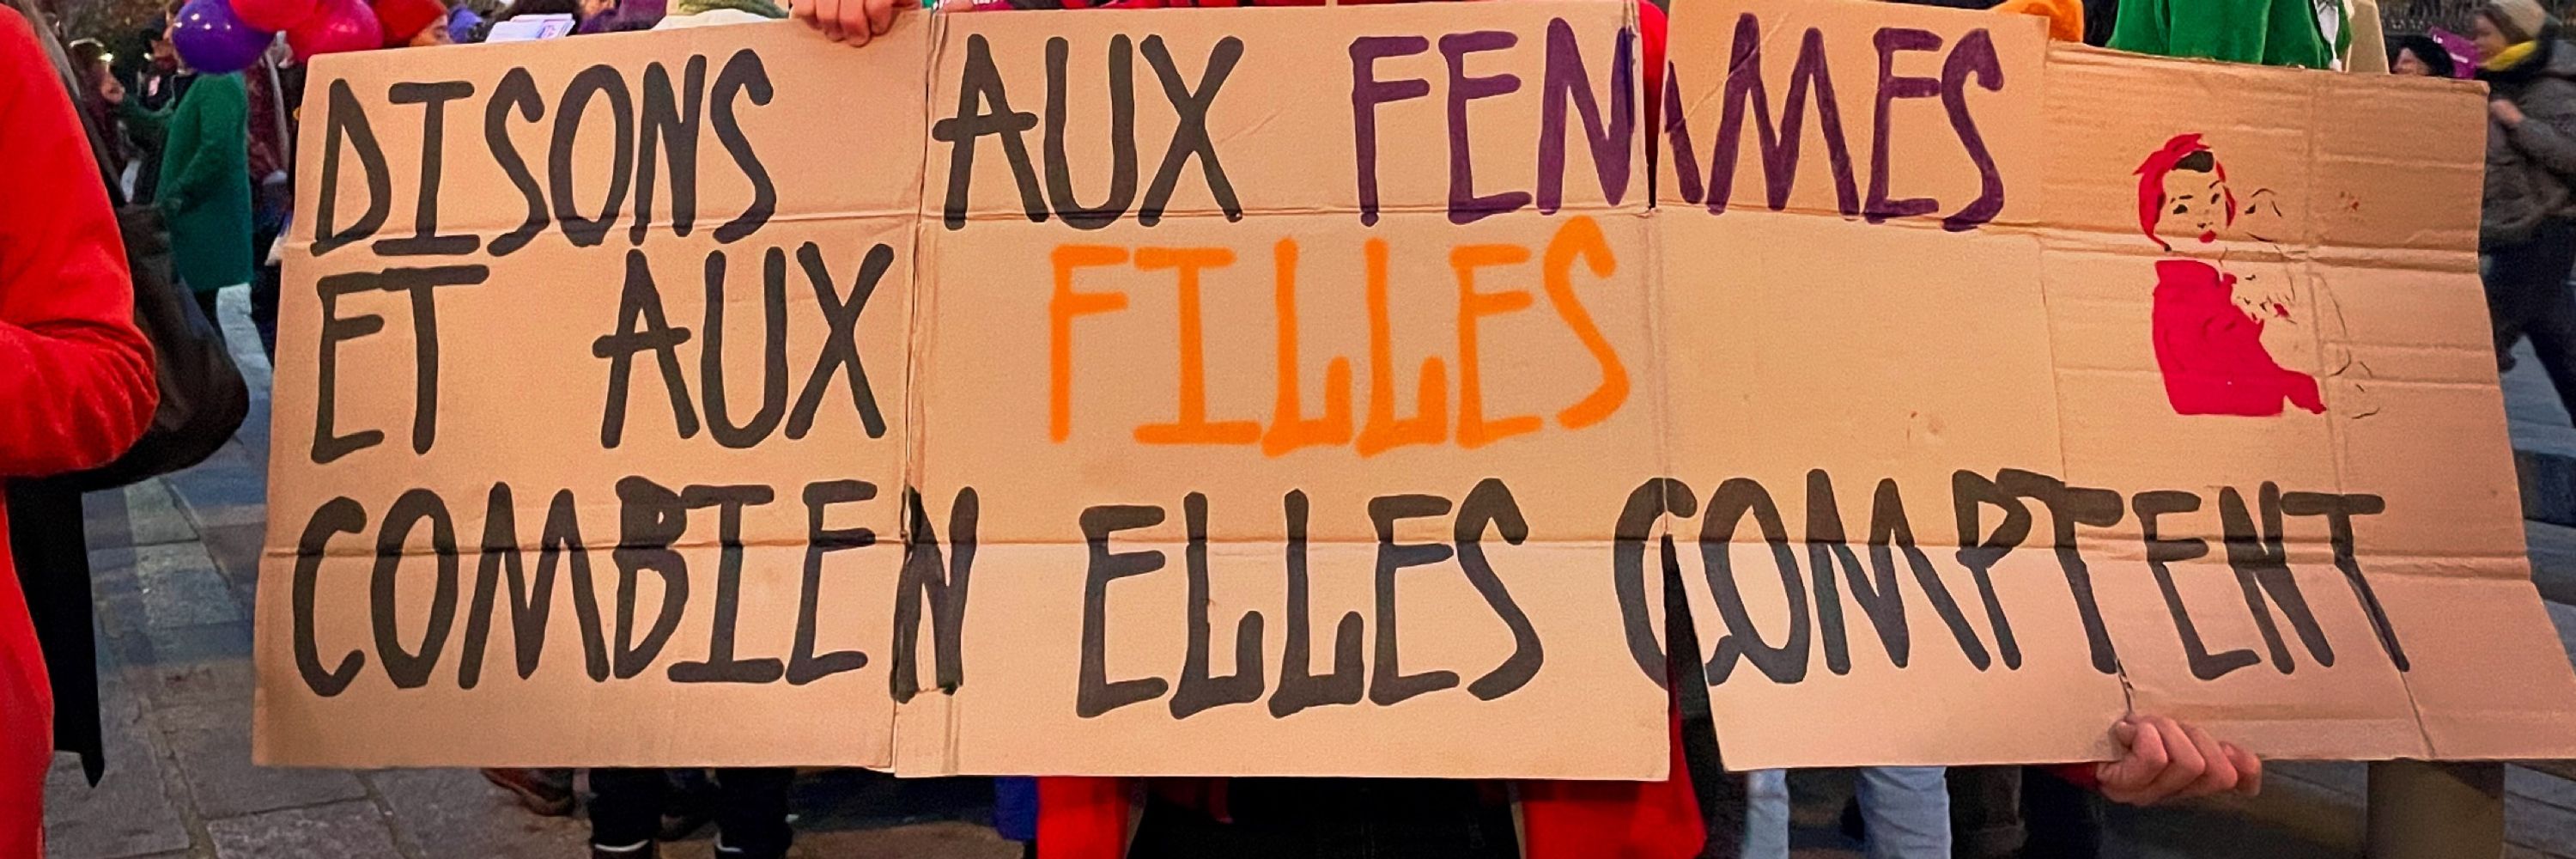 DISONS AUX FEMMES
ET AUX FILLES
COMBIEN ELLES COMPTENT